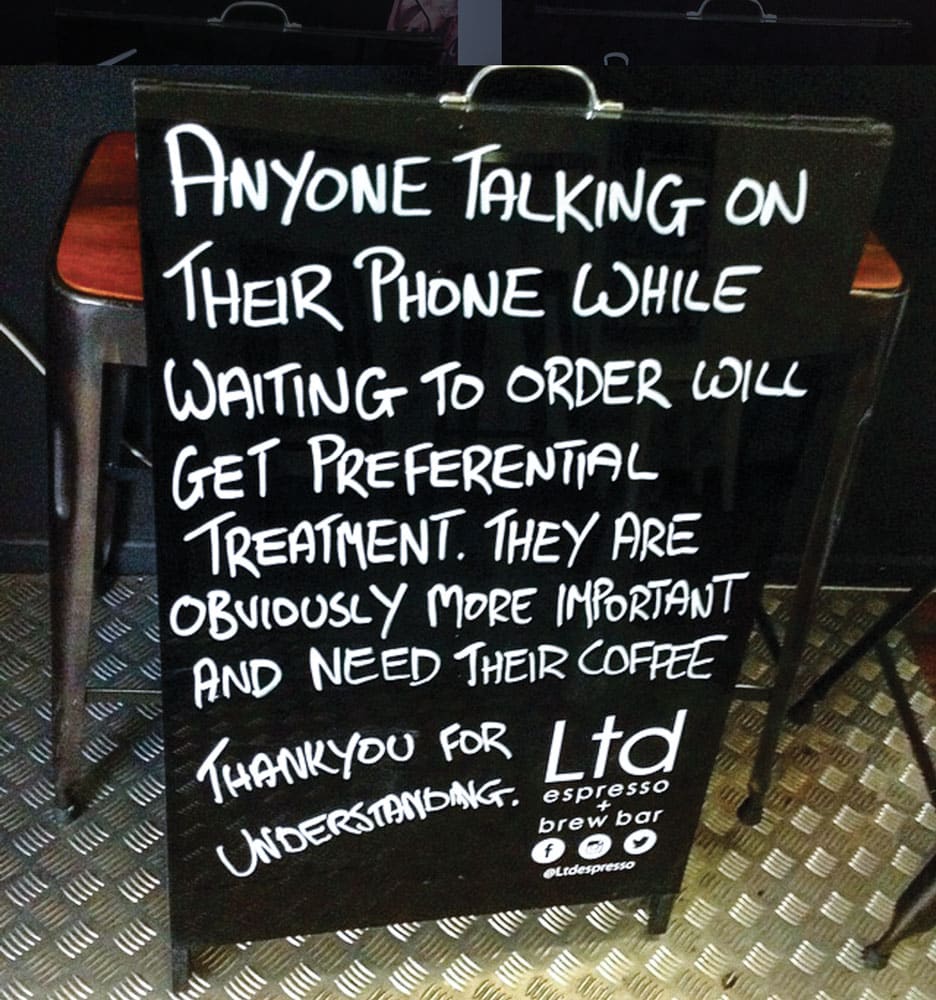 ANYONE TALKING ON
THEIR PHONE WHILE
WAITING TO ORDER WILL
GET PREFERENTIAL
TREATMENT. THEY ARE
OBVIOUSLY MORE IMPORTANT
AND NEED THEIR COFFEE
THANKYOU FOR
UNDERSTANDING.
Ltd
espresso
+
brew bar
@Ltdespresso